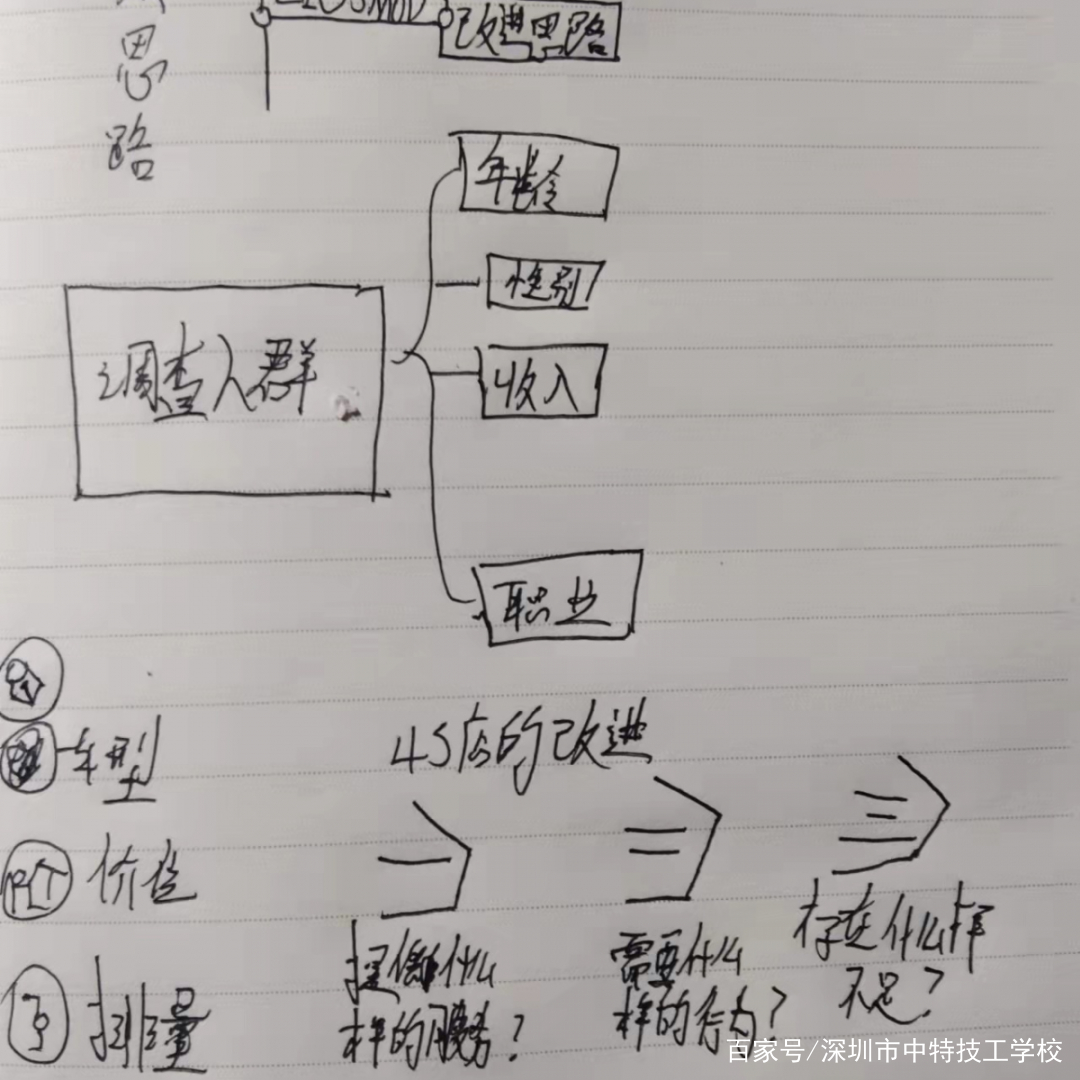 改进思路
思
路
年龄
性别
调查人群
收入
职业
车型
4S店的改进
价位
一
二
三
提供什么
样的服务?
需要什么
样的行为?
存在什么样
不足?
排量
百家号/深圳市中特技工学校